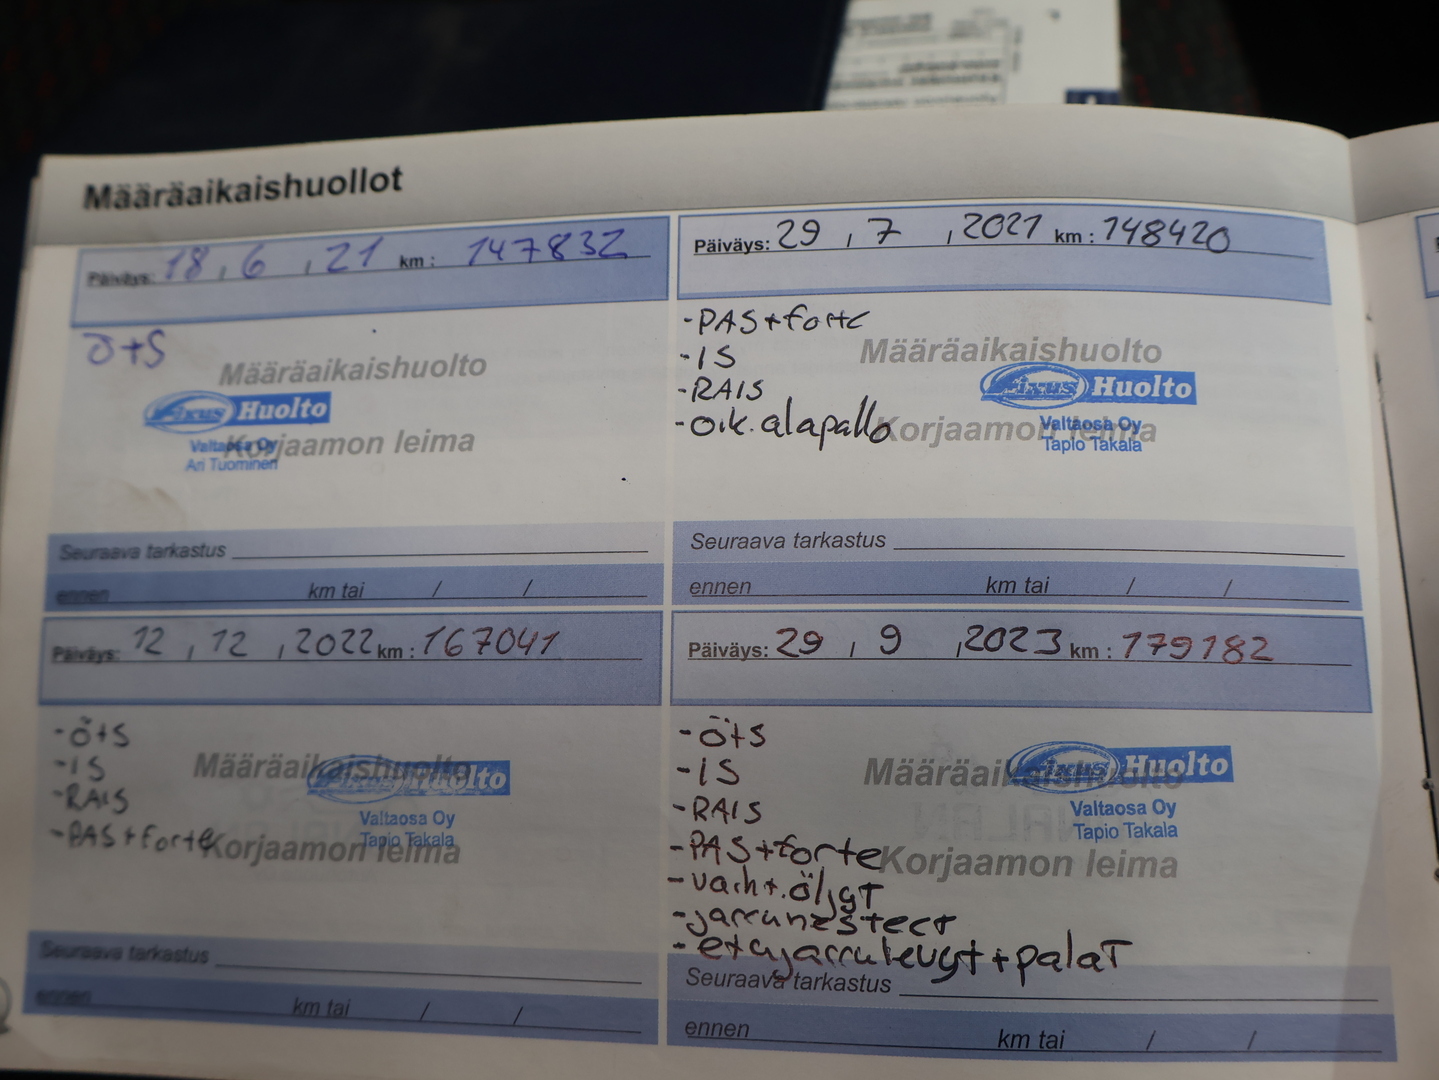 Määräaikaishuollot
Päiväys: 18 , 6 , 21 km : 147832
Ö+S
Määräaikaishuolto
Fixus Huolto
Korjaamon leima
Valtaosa Oy
Ari Tuominen
Seuraava tarkastus
ennen km tai / /
Päiväys: 29 , 7 , 2021 km : 148420
-PAS+forte
-IS
-RAIS
-oik. alapallo
Määräaikaishuolto
Fixus Huolto
Korjaamon leima
Valtaosa Oy
Tapio Takala
Seuraava tarkastus
ennen km tai / /
Päiväys: 12 , 12 , 2022 km : 167041
-Ö+S
-IS
-RAIS
-PAS+forte
Määräaikaishuolto
Fixus Huolto
Korjaamon leima
Valtaosa Oy
Tapio Takala
Seuraava tarkastus
ennen km tai / /
Päiväys: 29 , 9 , 2023 km : 179182
-Ö+S
-IS
-RAIS
-PAS+forte
-vaiht.öljyt
-jarrunesteet
-etujarrulevyt+palat
Määräaikaishuolto
Fixus Huolto
Korjaamon leima
Valtaosa Oy
Tapio Takala
Seuraava tarkastus
ennen km tai / /